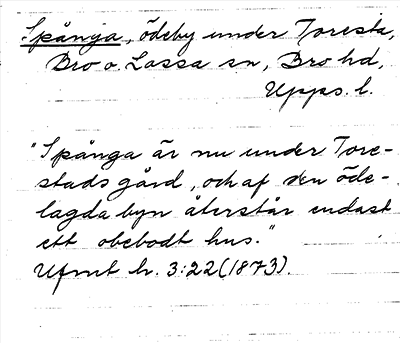 Spånga, ödeby under Toresta,
Bro o. Lossa sn, Bro hd,
Upps. l.
"Spånga är nu under Tore-
stads gård, och af den öde-
lagda byn återstår endast
ett obebodt hus."
Ufmt h. 3:22 (1873).